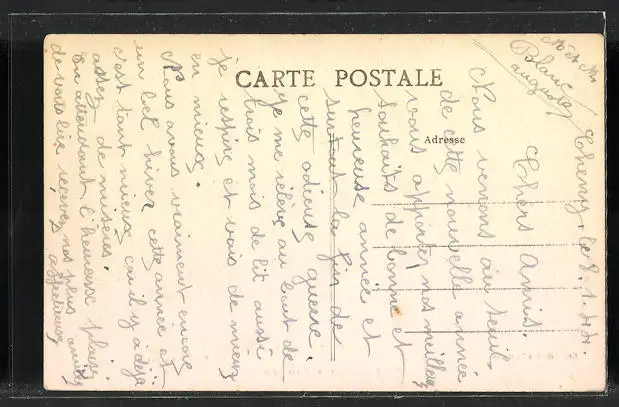 CARTE POSTALE
Adresse
Mr et Mme
Blanc
Auguste
Cheny, le 8.1.44.
Chers Amis.
Nous venons au seuil
de cette nouvelle année
vous apporter nos meilleurs
souhaits de bonne et
heureuse année et
surtout la fin de
cette odieuse guerre.
Je me relève au bout de
trois mois de lit aussi
je respire et vais de mieux
en mieux.
Nous avons vraiment encore
un bel hiver cette année et
c'est tant mieux car il y a déjà
assez de misères.
En attendant l'heureux plaisir
de vous lire recevez nos plus amitiés
affectueuses